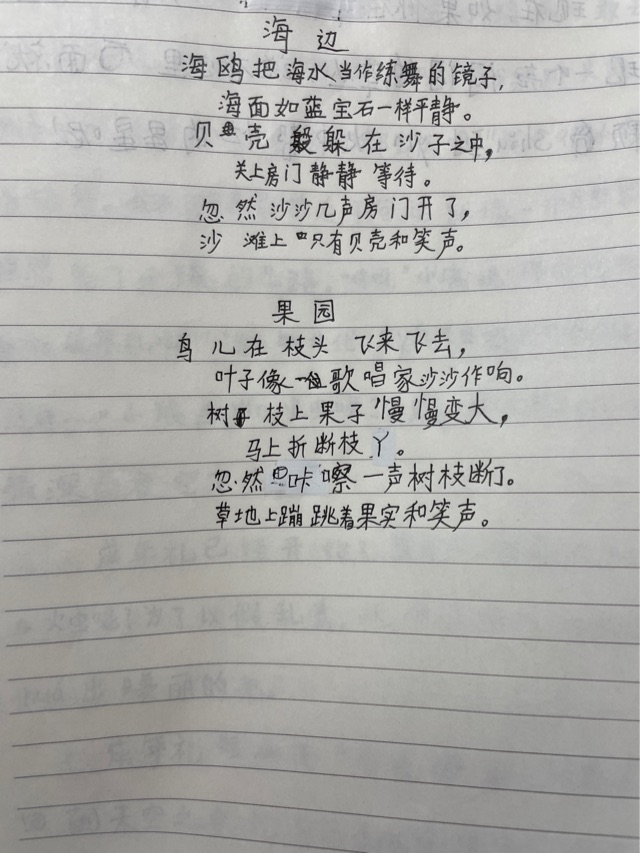 海边
海鸥把海水当作练舞的镜子，
海面如蓝宝石一样平静。
贝壳般躲在沙子之中，
关上房门静静等待。
忽然沙沙几声房门开了，
沙滩上只有贝壳和笑声。
果园
鸟儿在枝头飞来飞去，
叶子像一位歌唱家沙沙作响。
树枝上果子慢慢变大，
马上折断枝丫。
忽然咔嚓一声树枝断了。
草地上蹦跳着果实和笑声。